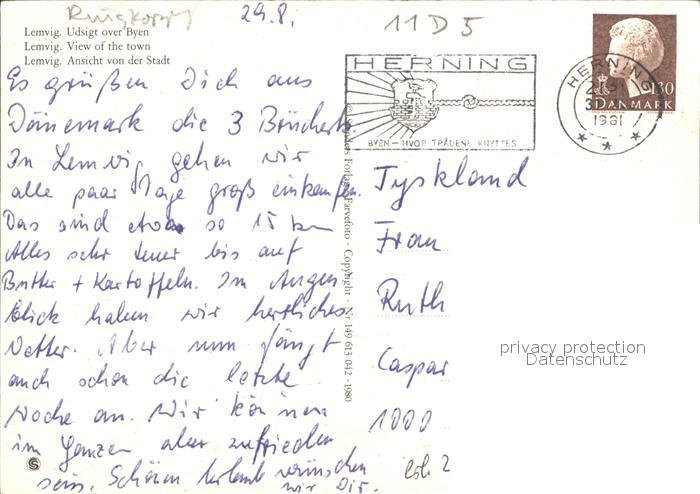 29.8.
11 D 5
Lemvig. Udsigt over Byen
Lemvig. View of the town
Lemvig. Ansicht von der Stadt
Es grüßen Dich aus
Dänemark die 3
In Lemvig gehen wir
alle paar Tage groß einkaufen.
Das sind etwa so 15 km
Alles sehr teuer bis auf
Butter + Kartoffeln. Im Augen
blick haben wir herrliches
Wetter. Aber nun fängt
auch schon die letzte
Woche an. Wir können
im Ganzen aber zufrieden
sein. Schönen Urlaub wünschen
wir Dir.
Forlag Farvefoto - Copyright - Nr 149 613 042 - 1980
HERNING
BYEN - HVOR TRÅDENE KNYTTES
HERNING
1981
130
DANMARK
Tyskland
Frau
Ruth
Caspar
1000
privacy protection
Datenschutz